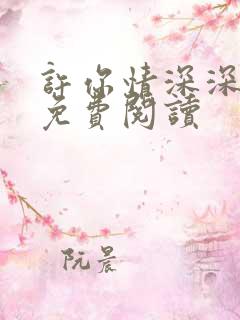 許你情深深
免費閱讀
阮晨